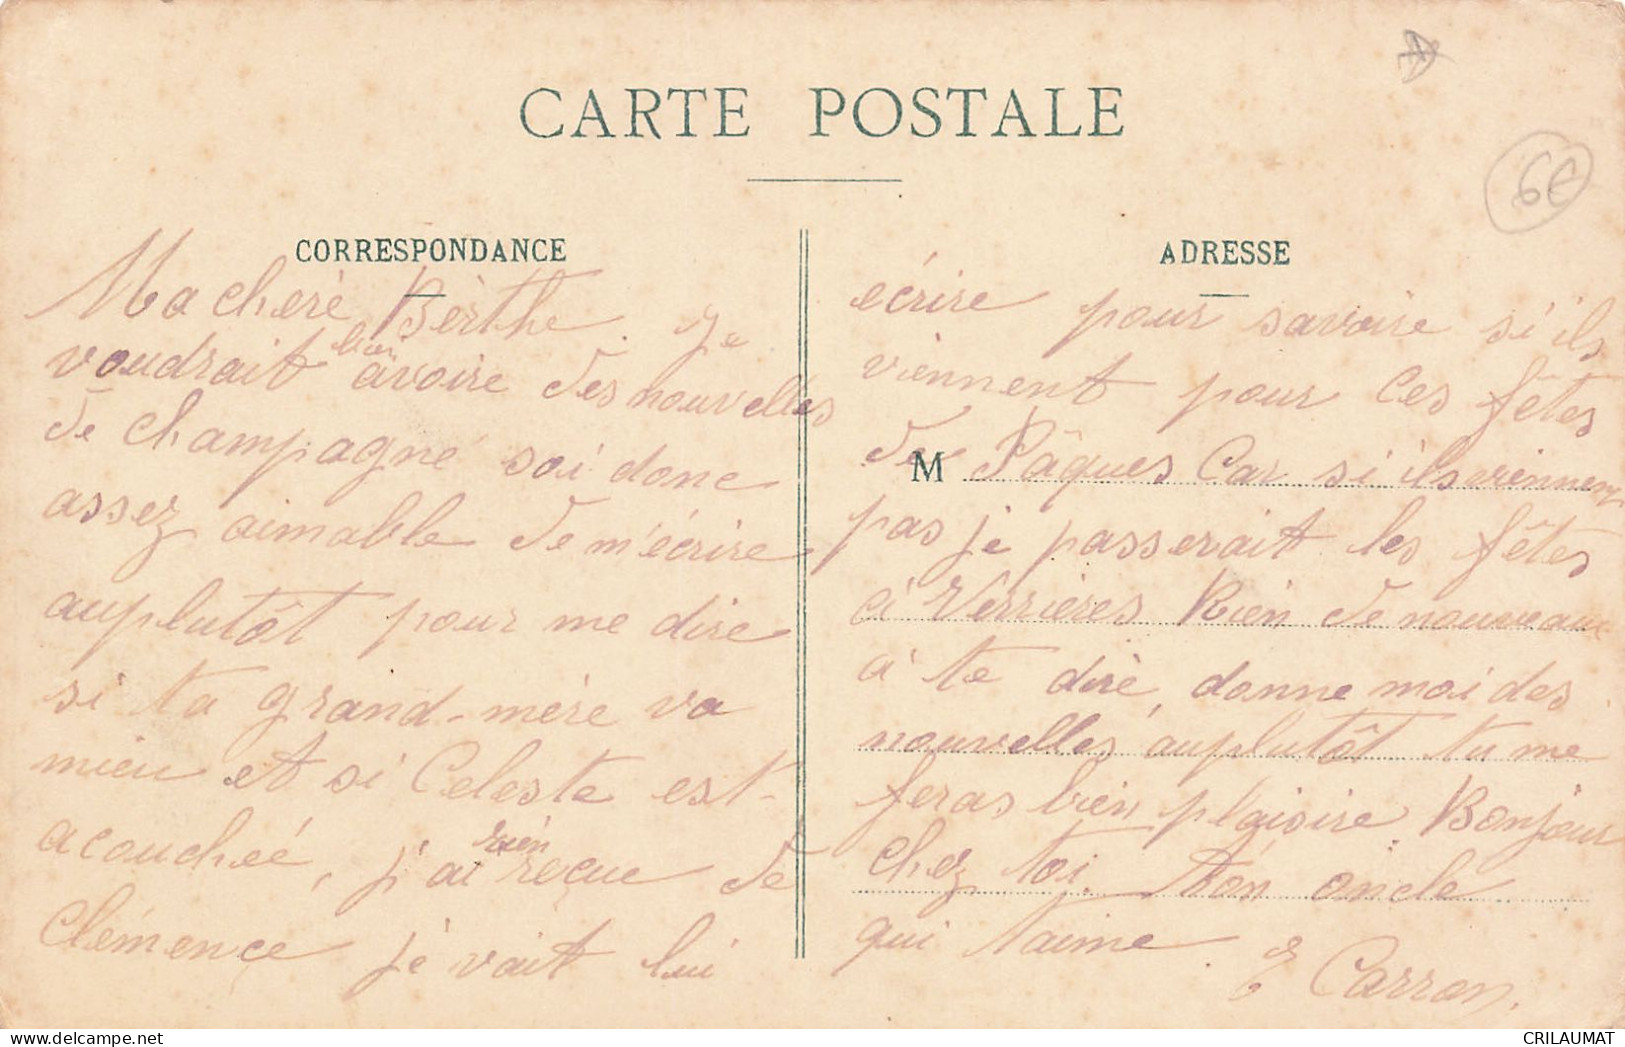 CARTE POSTALE
6€
CORRESPONDANCE
Ma cheré Bèrthe. Je
voudrait bien avoire des nouvelles
de champagne soi donc
assez aimable de m'écrire
auplutôt pour me dire
si ta grand-mère va
mieu et si Celeste est
acouchéé, j'ai rién reçue de
Clémence je vait lui
ADRESSE
écrire pour savoire si ils
viennent pour les fêtes
M
de Pâques Car si ils viennent
pas je passerait les fêtes
a Verrieres Rien de nouveau
a te diré, donne moi des
nouvelles auplutôt tu me
feras bien plaisire. Bonjour
chez toi. Tón oncle
qui t'aime. E Carron.
CRILAUMAT